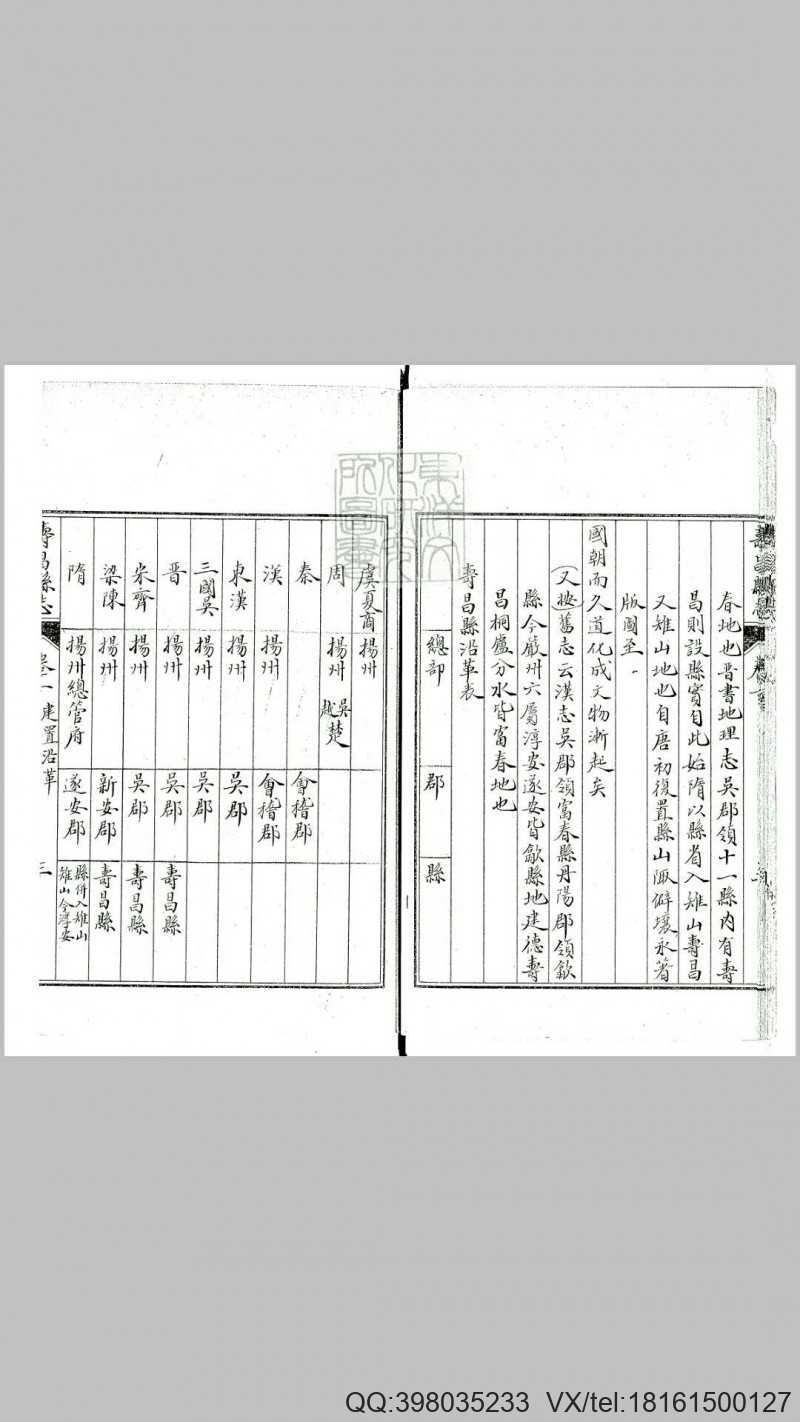 春地也晋書地理志吳郡領十一縣內有壽
昌則設縣實自此始隋以縣省入雉山壽昌
又雉山地也自唐初復置縣山陬僻壤永著
版圖至
國朝而久道化成文物漸起矣
又按舊志云漢志吳郡領富春縣丹陽郡領歙
縣今嚴州六屬淳安遂安皆歙縣地建德壽
昌桐廬分水皆富春地也
壽昌縣沿革表
總部 郡 縣
虞夏商 揚州
周 揚州 吳越楚
秦 會稽郡
漢 揚州 會稽郡
東漢 揚州 吳郡
三國吳 揚州 吳郡
晋 揚州 吳郡 壽昌縣
宋齊 揚州 吳郡 壽昌縣
梁陳 揚州 新安郡 壽昌縣
隋 揚州總管府 遂安郡 縣併入雉山
雉山今淳安
壽昌縣志 卷一 建置沿革 三
QQ:398035233 VX/tel:18161500127